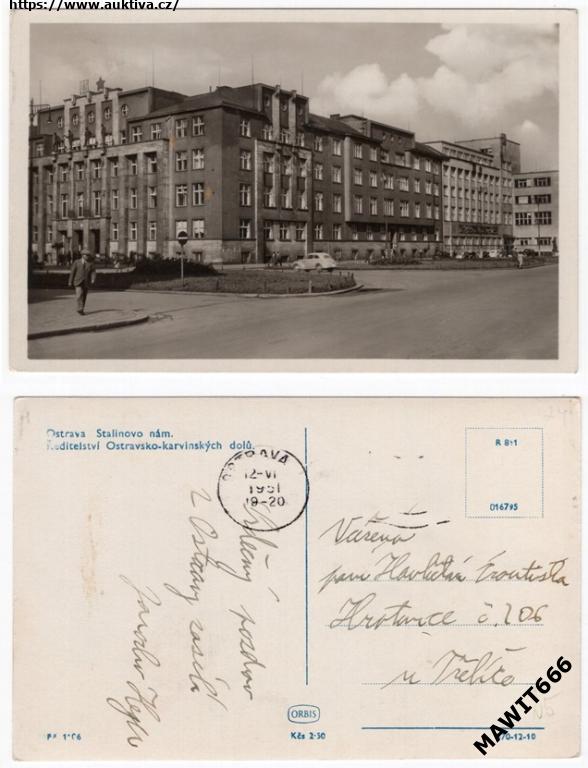 https://www.auktiva.cz/
Ostrava Stalinovo nám.
Ředitelství Ostravsko-karvinských dolů.
R 811
016795
OSTRAVA
12-VI
1951
19-20
Srdečný pozdrav
z Ostravy zasílá
Jaroslav
Vážená
paní Havlátová
Hrotovice č. 206
u Třebíče
ORBIS
Kčs 2·50
70-12-10
MAWIT666